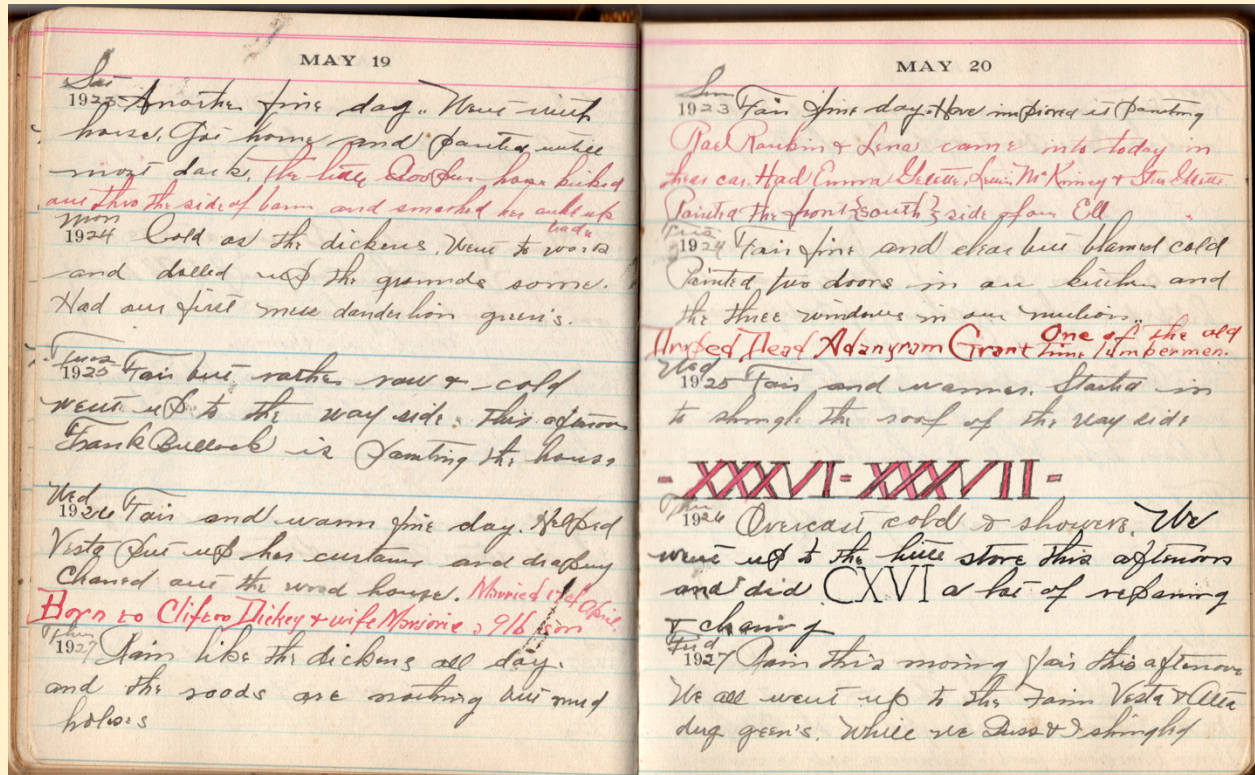 MAY 19
Sat
1923 Another fine day.. Went with
horse. Got home and painted untill
most dark. The little Cooper horse kicked
out thro the side of barn and smashed her ankle up
bad.
Mon
1924 Cold as the dickens. Went to work
and dolled up the grounds some.
Had our first mess danderlion green's.
Tues
1925 Fair but rather raw & cold
went up to the way side this afternoon
Frank Bullock is painting the house
Wed
1926 Fair and warm fine day. Helped
Vesta put up her curtains and drapery
Cleaned out the wood house. Married 17th of April.
Born to Clifton Dickey & wife Marjorie a 9lb son
Thur
1927 Rain like the dickens all day.
and the roads are nothing but mud
holes
MAY 20
Sun
1923 Fair fine day. Have improved it painting
Rae Rankin & Lena came into today in
their car. Had Emma Lewis McKinney &
Painted the front {south} side of our Ell
Tues
1924 Fair fine and clear but blamed cold
Painted two doors in our kitchen and
the three windows in our
Droped Dead Adanyram Grant One of the old
time lumbermen.
Wed
1925 Fair and warmer. Started in
to shingle the roof of the way side
- XXXVI = XXXVII -
Thur
1926 Overcast cold & showers. We
went up to the little store this afternoon
and did CXVI a lot of repairing
& cleaning
Frid
1927 Rain this moring fair this afternoon
We all went up to the Farm Vesta &
dug green's. While we & I shingled